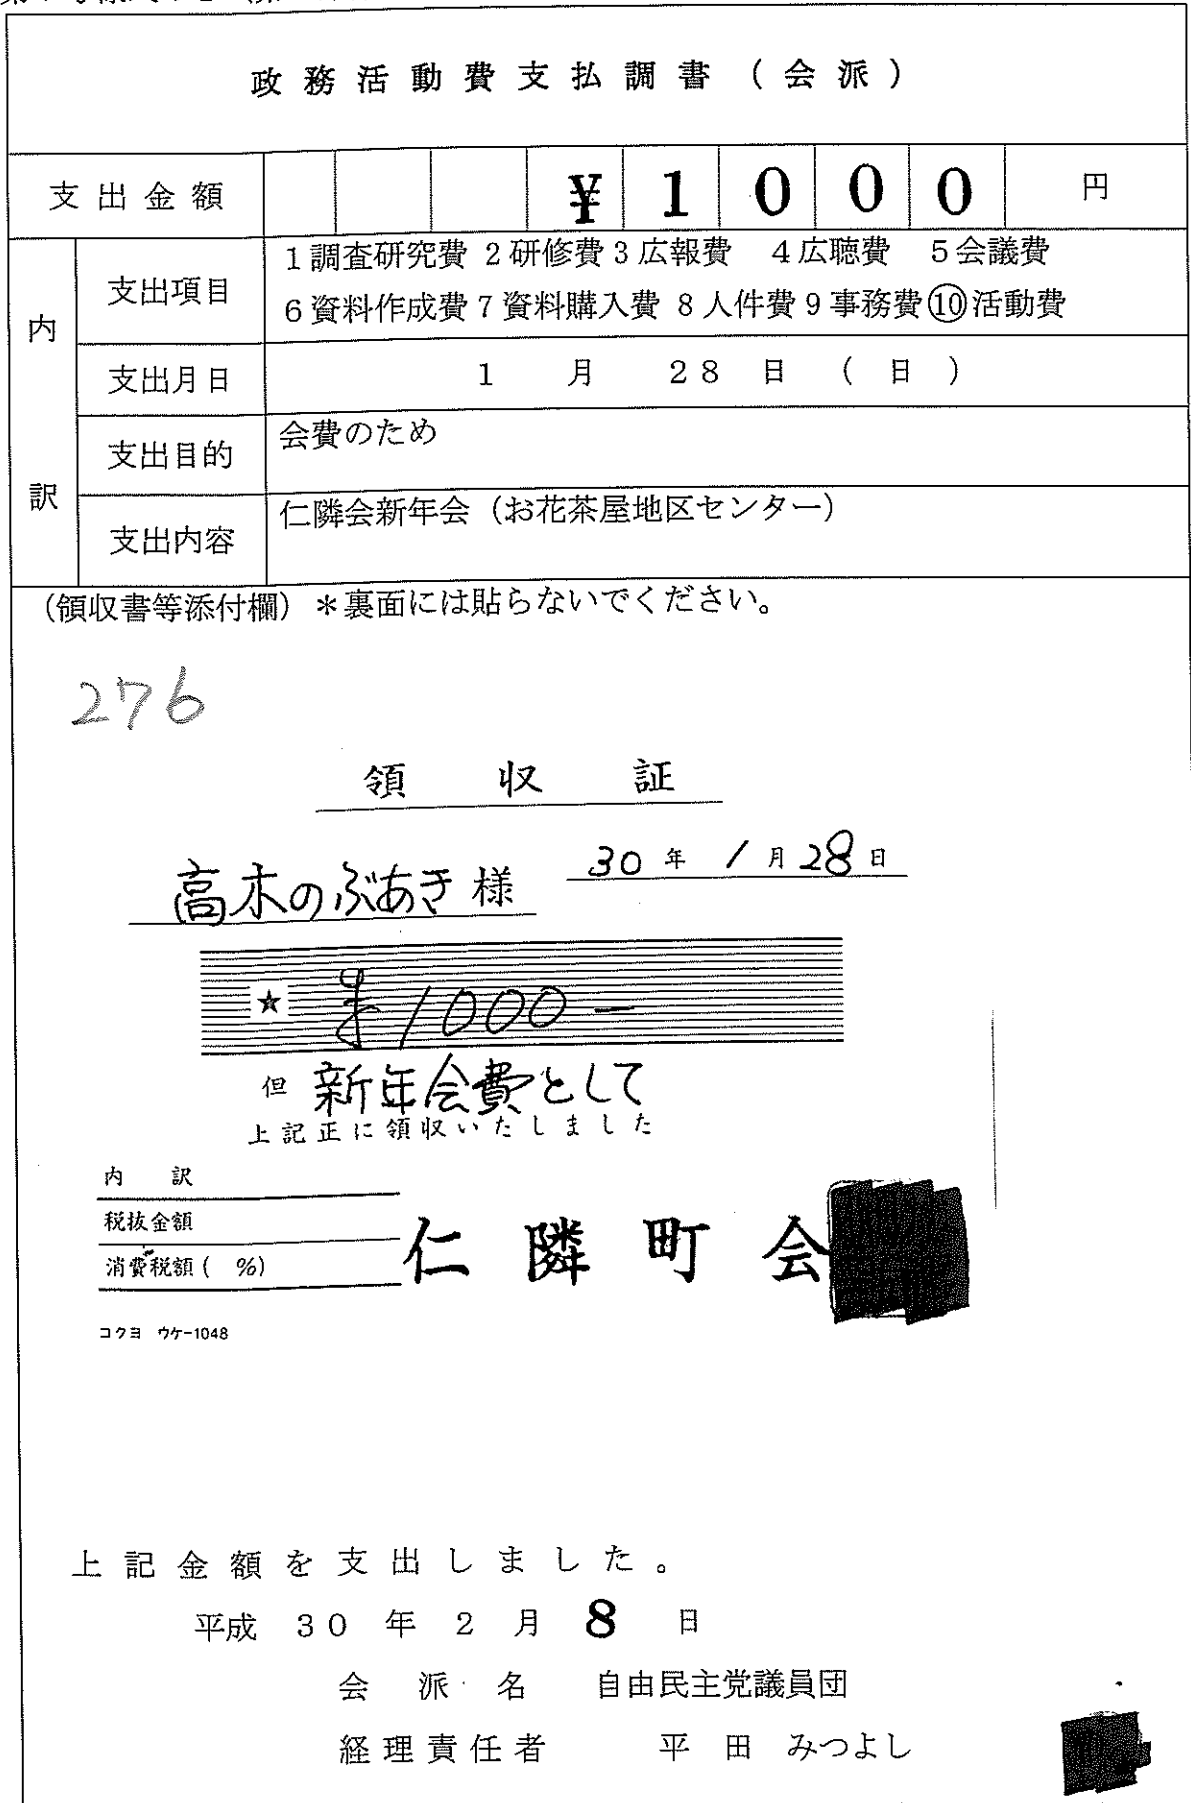 政務活動費支払調書（会派）
支出金額 ¥1000 円
内訳
支出項目 1調査研究費 2研修費 3広報費 4広聴費 5会議費
6資料作成費 7資料購入費 8人件費 9事務費 ⑩活動費
支出月日 1月28日（日）
支出目的 会費のため
支出内容 仁隣会新年会（お花茶屋地区センター）
（領収書等添付欄）＊裏面には貼らないでください。
276
領収証
30年1月28日
高木のぶあき様
★ ¥1000－
但 新年会費として
上記正に領収いたしました
内 訳
税抜金額
消費税額( %)
仁隣町会
コクヨ ウケ-1048
上記金額を支出しました。
平成 30年2月8日
会派名 自由民主党議員団
経理責任者 平田 みつよし